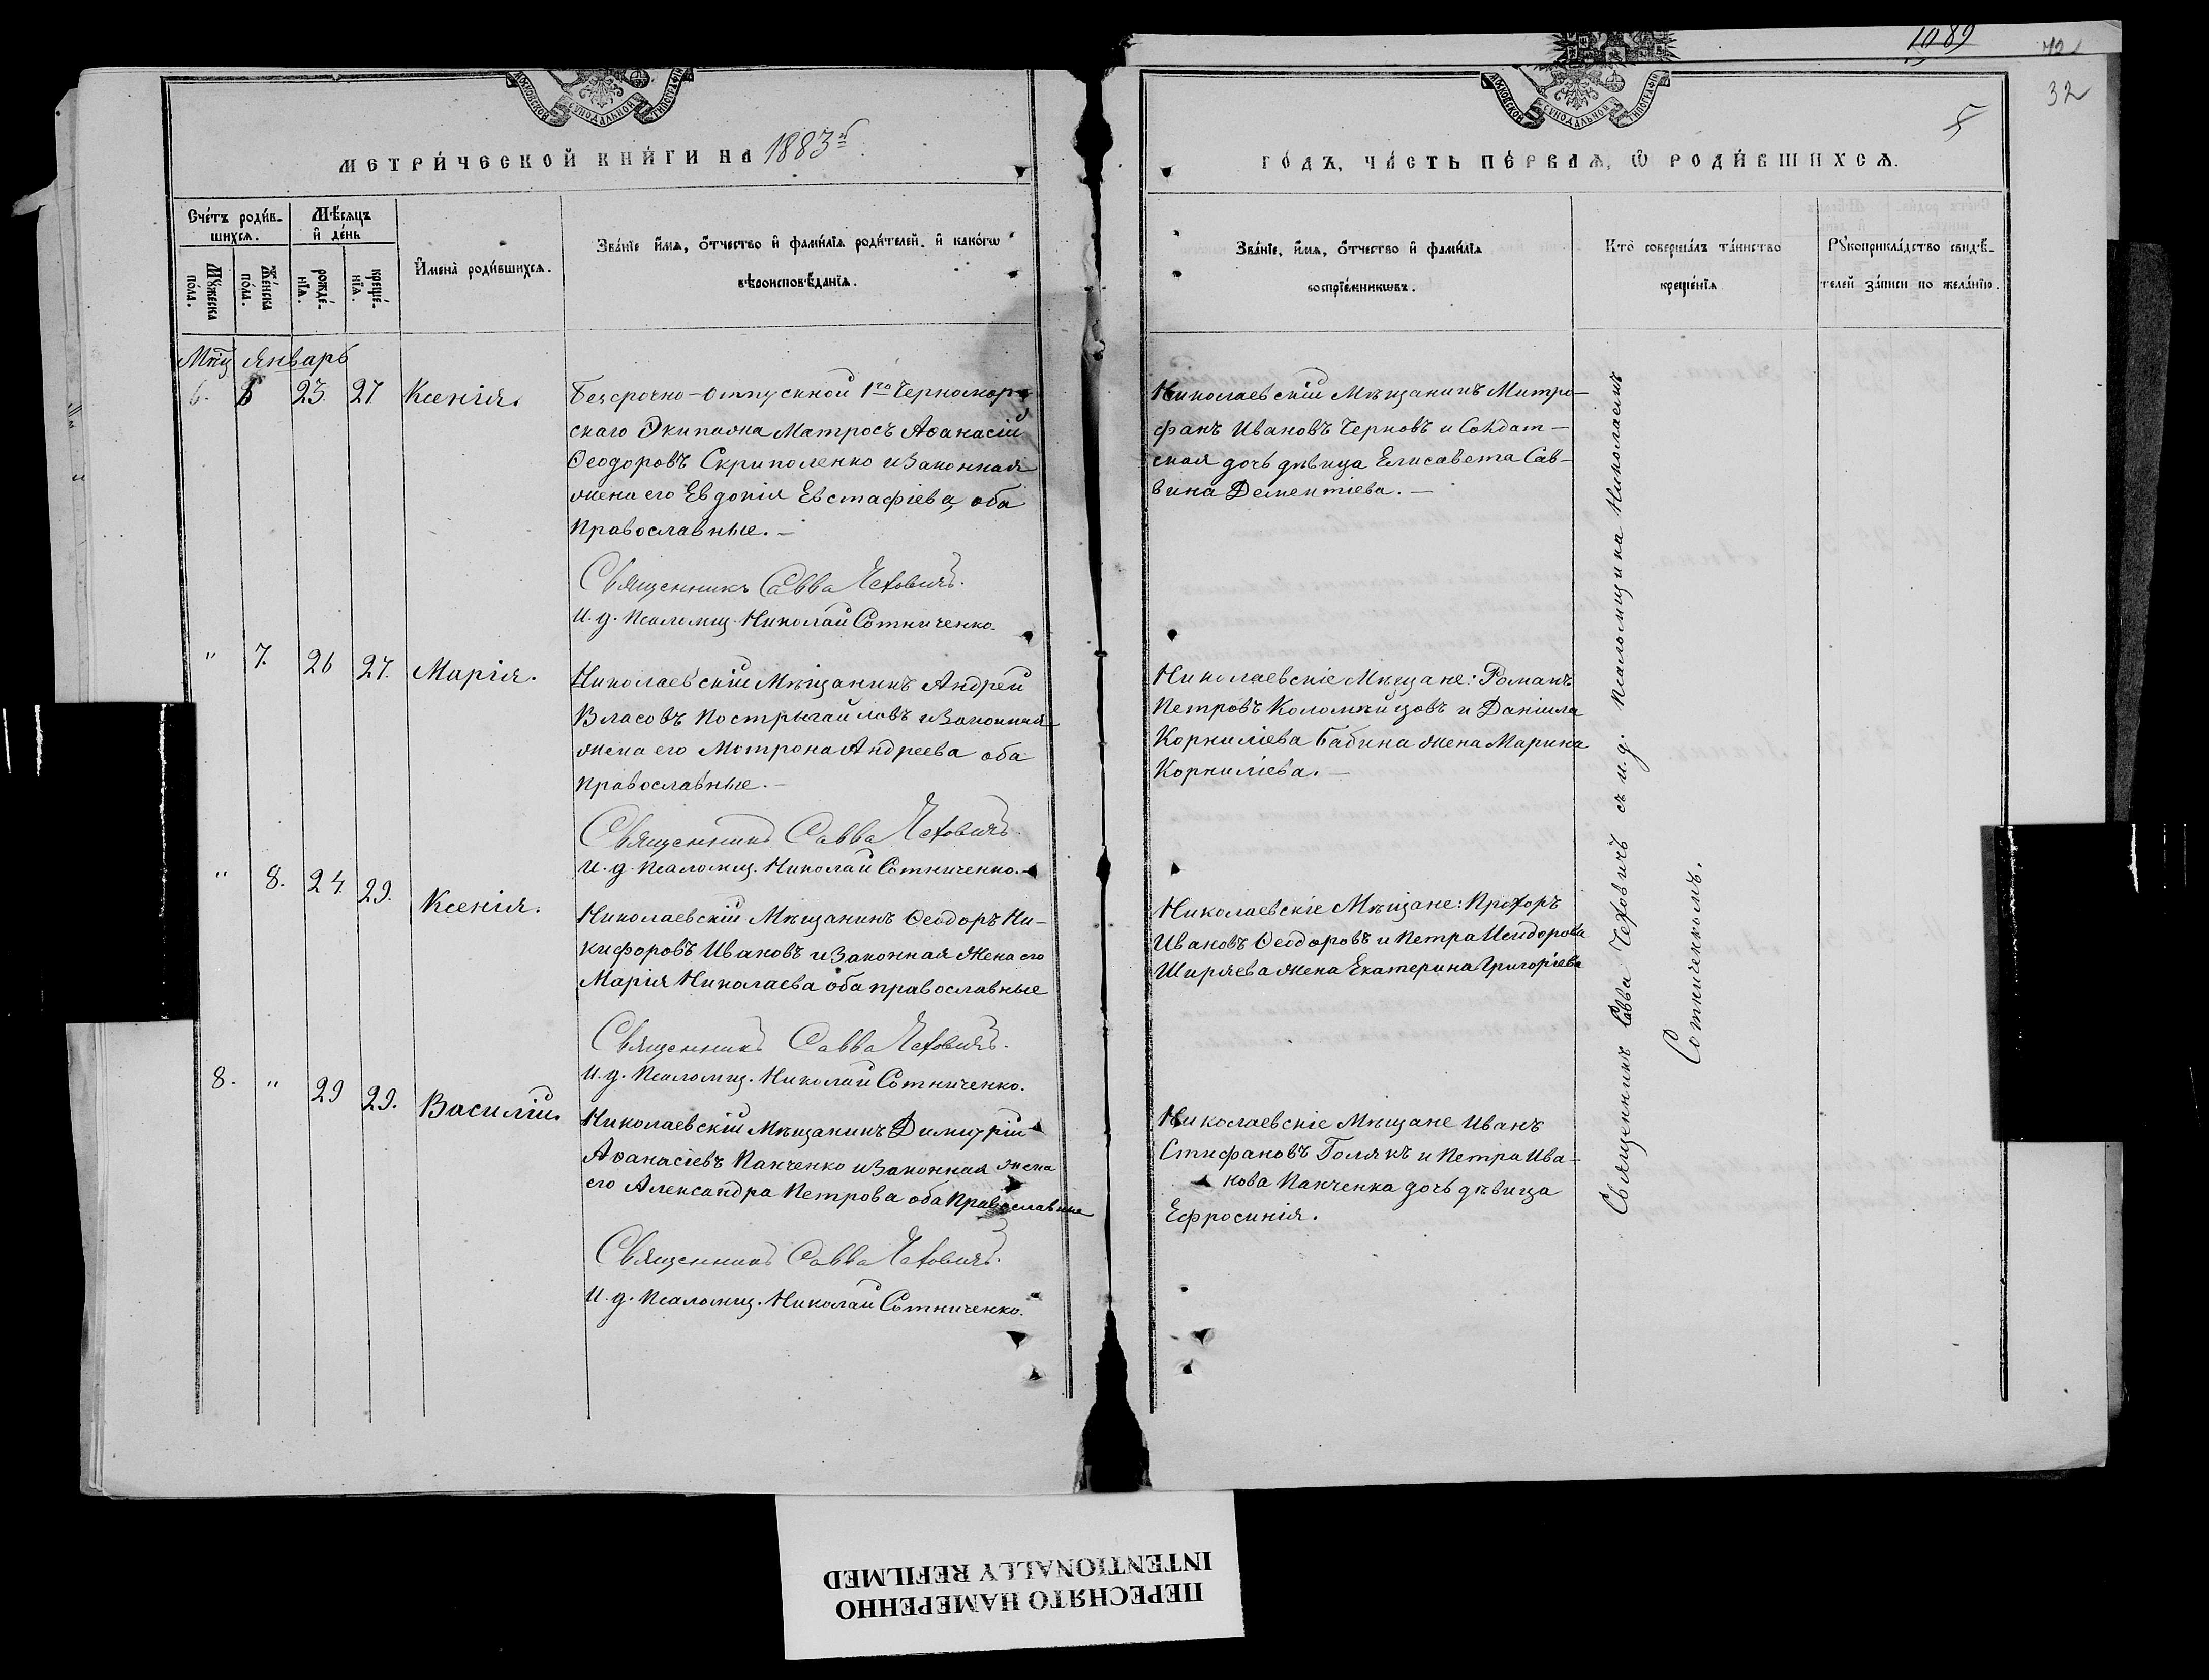 1089
42
32
5
МОСКОВСКОЙ СУНОДАЛЬНОЙ ТИПОГРАФІИ
МОСКОВСКОЙ СУНОДАЛЬНОЙ ТИПОГРАФІИ
МЕТРИ́ЧЕСКОЙ КНИ́ГИ НА 1883й
ГО́ДЪ, ЧА́СТЬ ПЕ́РВАЯ, Ѿ РОДИ́ВШИХСЯ.
Сче́тъ роди́в-
шихся.
Мѣ́сяцъ
и҆ де́нь
Мꙋжеска
по́ла.
Же́нска
по́ла.
рожде́-
нїя.
креще́-
нїя.
И҆мена̀ роди́вшихся.
Зва́нїе и҆́мя, ѻ҆́тчество и҆ фами́лїя роди́телей, и҆ како́гѡ
вѣроисповѣ́данїя.
Зва́нїе, и҆́мя, ѻ҆́тчество и҆ фами́лїя
воспрїе́мникѡвъ.
Кто̀ соверша́лъ та́инство
креще́нїя
Рꙋкоприкла́дство свидѣ́-
телей за́писи по жела́нїю.
Мцъ Январь
6. 6 23. 27. Ксенія.
Безсрочно-отпускной 1го Черномор-
скаго Экипажа Матросъ Аѳанасій
Ѳеодоровъ Скриполенко и Законная
жена его Евдокія Евстафіева, оба
Православные. –
Священникъ Савва Чеховичъ.
И. д. Псаломщ. Николай Сотниченко.
Николаевскій Мѣщанинъ Митро-
фанъ Ивановъ Черновъ и Солдат-
ская дочь дѣвица Елисавета Сав-
вина Дементіева. –
" 7. 26 27. Марія.
Николаевскій Мѣщанинъ Андрей
Власовъ Пострыгайловъ и Законная
жена его Мотрона Андреева оба
православные. –
Священникъ Савва Чеховичъ.
И. д. Псаломщ. Николай Сотниченко.
Николаевскіе Мѣщане: Романъ
Петровъ Коломийцовъ и Даніила
Корниліева Бабина жена Марина
Корниліева. –
" 8. 24 29. Ксенія.
Николаевскій Мѣщанинъ Ѳеодоръ Ни-
кифоровъ Ивановъ и Законная жена его
Марія Николаева оба православные
Священникъ Савва Чеховичъ.
И. д. Псаломщ. Николай Сотниченко.
Николаевскіе Мѣщане: Прохоръ
Ивановъ Ѳеодоровъ и Петра Исидорова
Ширяева жена Екатерина Григоріева
8. " 29 29. Василій.
Николаевскій Мѣщанинъ Димитрій
Аѳанасіевъ Панченко и Законная жена
его Александра Петрова оба Православные
Священникъ Савва Чеховичъ.
И. д. Псаломщ. Николай Сотниченко.
Николаевскіе Мѣщане Иванъ
Стифановъ Голякъ и Петра Ива-
нова Панченка дочь дѣвица
Ефросинія.
Священникъ Савва Чеховичъ съ и. д. псаломщика Николаемъ
Сотниченкымъ.
ПЕРЕСНЯТО НАМЕРЕННО
INTENTIONALLY REFILMED